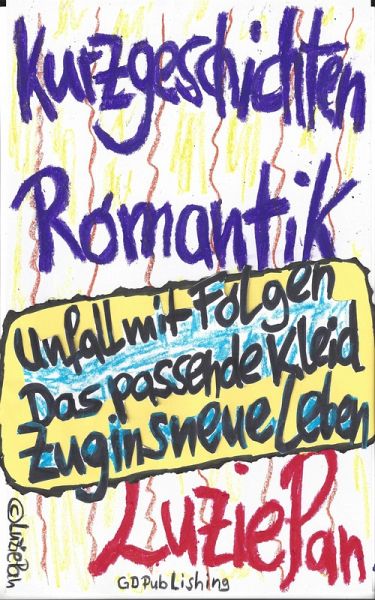 Kurzgeschichten
Romantik
Unfall mit Folgen
Das passende Kleid
Zug ins neue Leben
Luzie Pan
©LuziePan
GDPubLishing